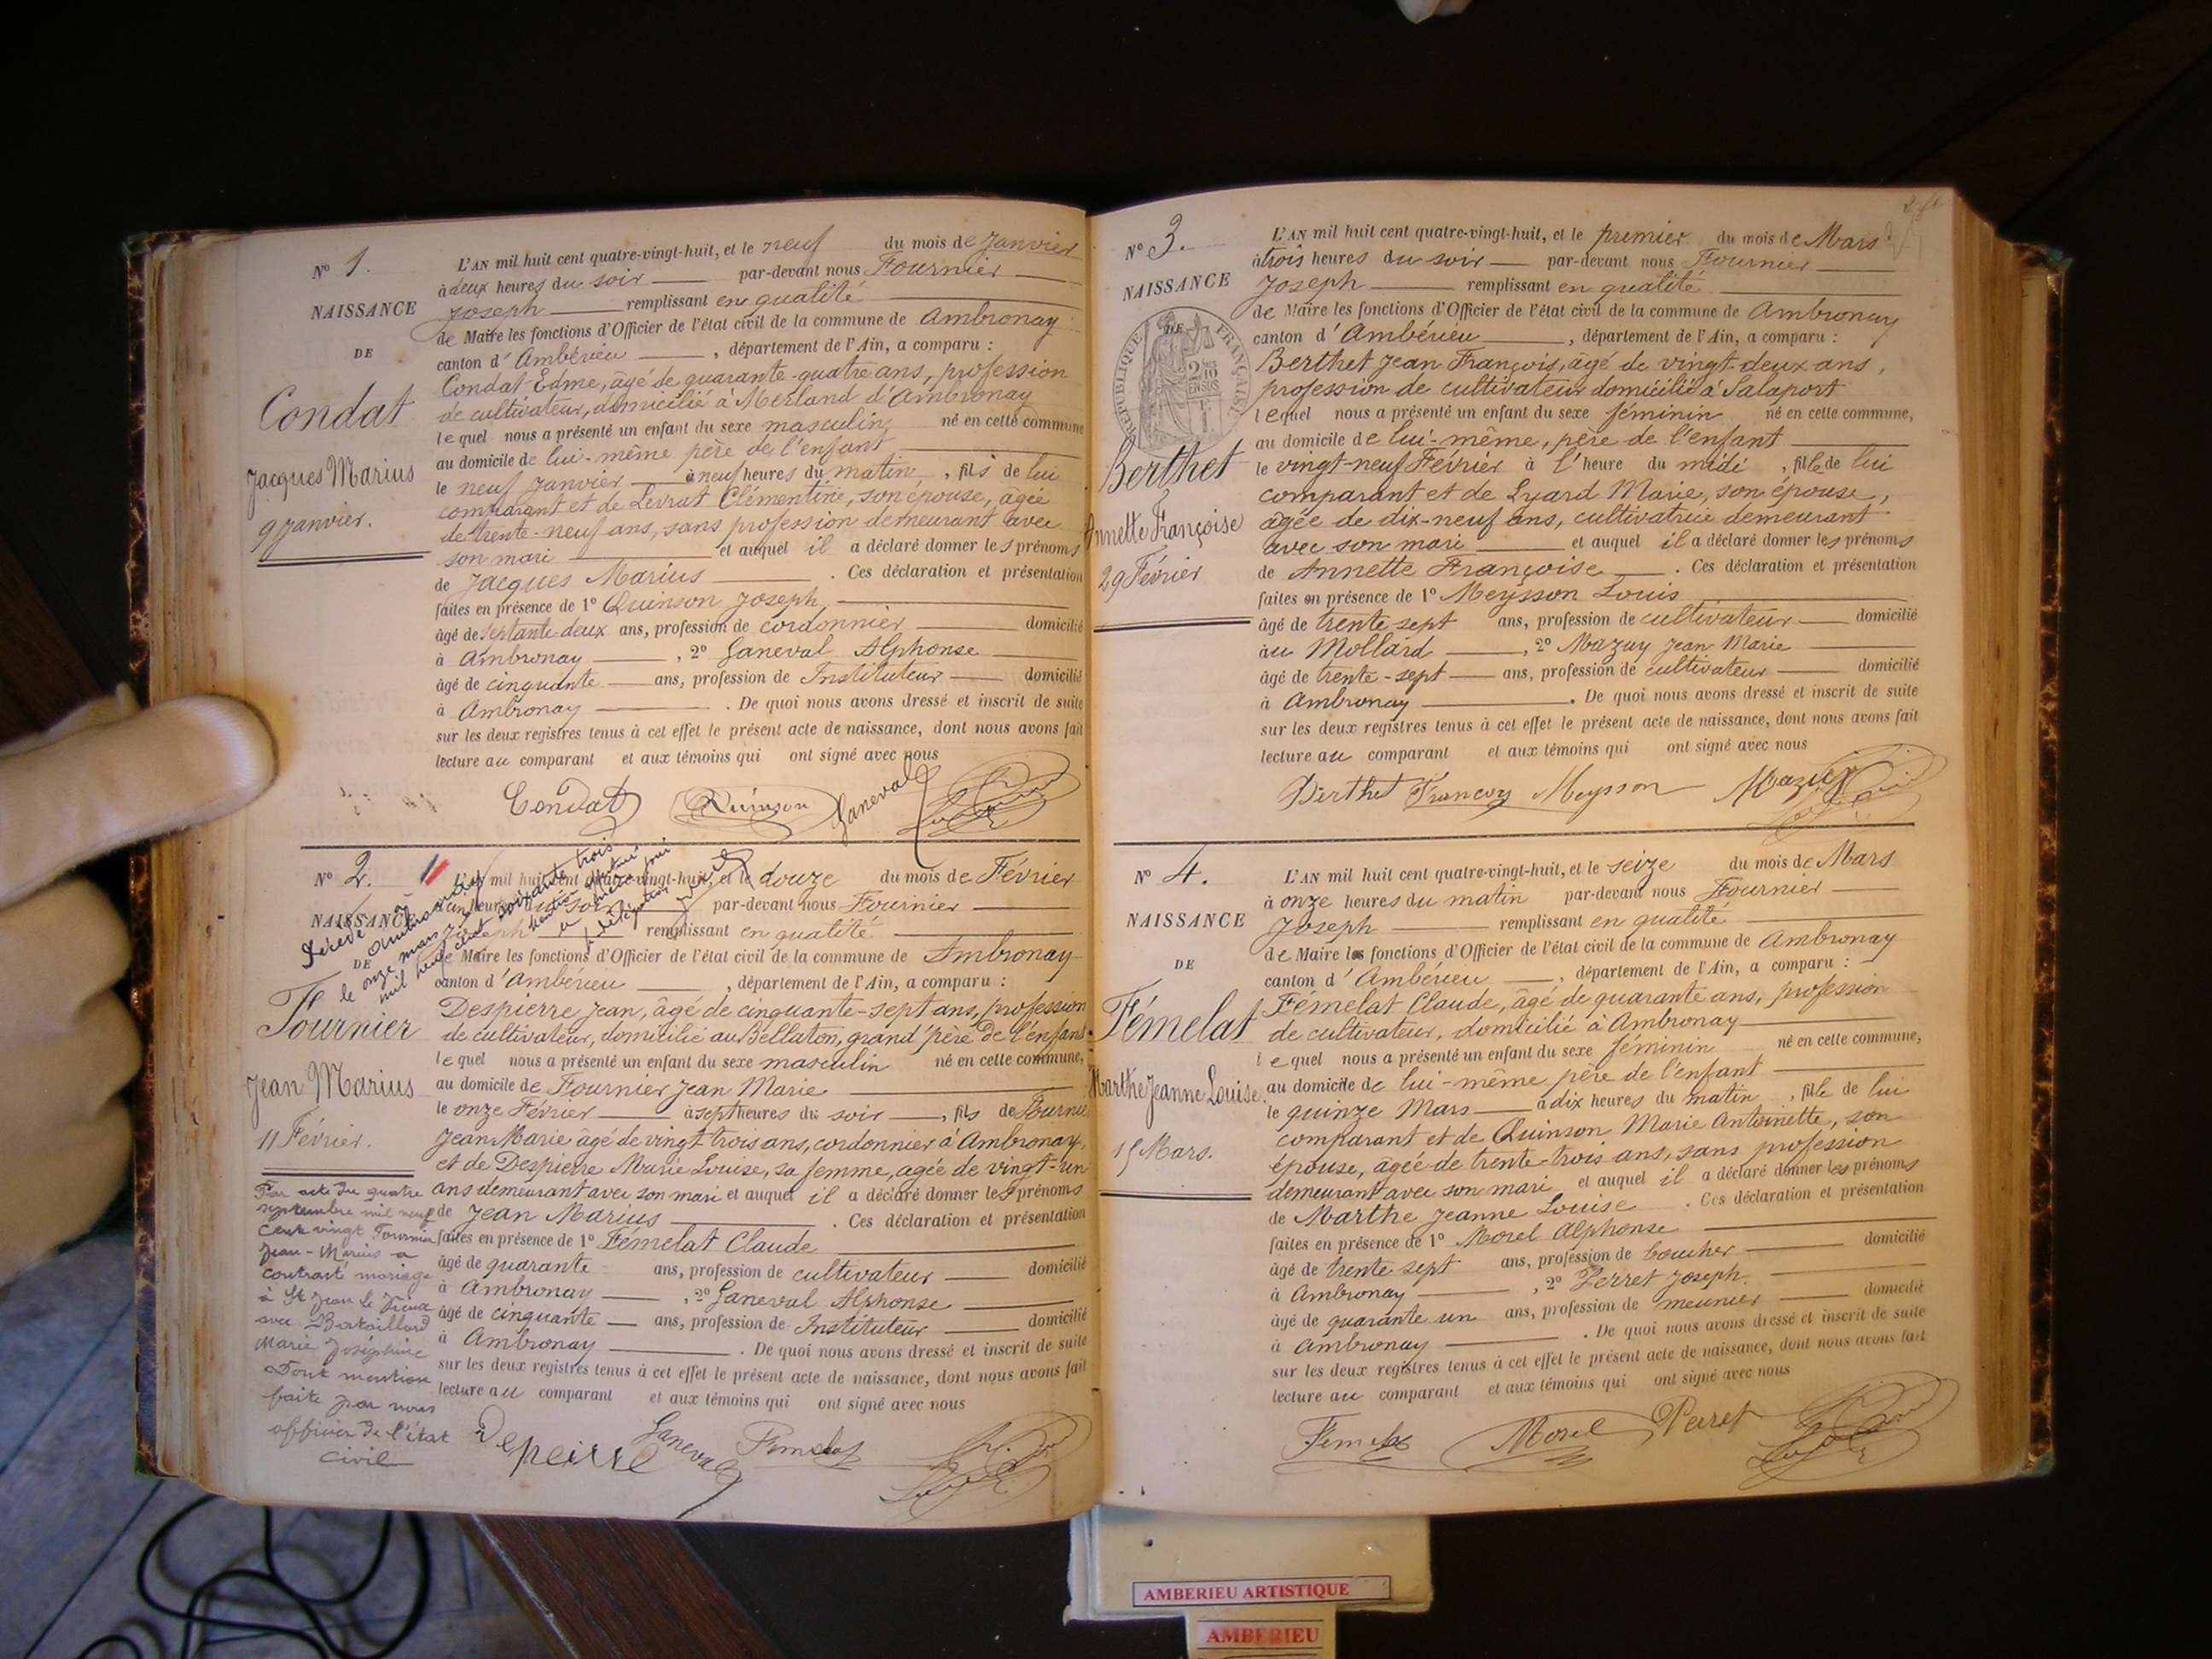 N° 1.
NAISSANCE
DE
Condat
Jacques Marius
9 Janvier.
L'AN mil huit cent quatre-vingt-huit, et le neuf du mois de Janvier
à deux heures du soir par-devant nous Fournier
Joseph remplissant en qualité
de Maire les fonctions d'Officier de l'état civil de la commune de Ambronay
canton d'Ambérieu, département de l'Ain, a comparu :
Condat Edme, âgé de quarante-quatre ans, profession
de cultivateur, domicilié à Merland d'Ambronay
lequel nous a présenté un enfant du sexe masculin, né en cette commune
au domicile de lui-même père de l'enfant
le neuf Janvier à neuf heures du matin, fils de lui
comparant et de Levrat Clémentine, son épouse, âgée
de trente-neuf ans, sans profession demeurant avec
son mari et auquel il a déclaré donner les prénoms
de Jacques Marius. Ces déclaration et présentation
faites en présence de 1° Quinson Joseph,
âgé de septante-deux ans, profession de cordonnier domicilié
à Ambronay, 2° Janeval Alphonse
âgé de cinquante ans, profession de Instituteur domicilié
à Ambronay. De quoi nous avons dressé et inscrit de suite
sur les deux registres tenus à cet effet le présent acte de naissance, dont nous avons fait
lecture au comparant et aux témoins qui ont signé avec nous
Condat Quinson Janeval
N° 2.
NAISSANCE
DE
Fournier
Jean Marius
11 Février.
Décédé à
Ambronay
le onze mars
mil neuf cent soixante trois
Par acte du quatre
septembre mil neuf
cent vingt Fournier
Jean-Marius a
contracté mariage
à St Jean le Vieux
avec Bataillard
Marie Joséphine
Dont mention
faite par nous
officier de l'état
civil
L'AN mil huit cent quatre-vingt-huit, et le douze du mois de Février
à un heure du soir par-devant nous Fournier
Joseph remplissant en qualité
de Maire les fonctions d'Officier de l'état civil de la commune de Ambronay
canton d'Ambérieu, département de l'Ain, a comparu :
Despierre Jean, âgé de cinquante-sept ans, profession
de cultivateur, domicilié au Bellaton, grand'père de l'enfant
lequel nous a présenté un enfant du sexe masculin né en cette commune,
au domicile de Fournier Jean Marie
le onze Février à sept heures du soir, fils de Fournier
Jean Marie âgé de vingt-trois ans, cordonnier à Ambronay,
et de Despierre Marie Louise, sa femme, agée de vingt-un
ans demeurant avec son mari et auquel il a déclaré donner les prénoms
de Jean Marius. Ces déclaration et présentation
faites en présence de 1° Fémelat Claude
âgé de quarante ans, profession de cultivateur domicilié
à Ambronay, 2° Janeval Alphonse
âgé de cinquante ans, profession de Instituteur domicilié
à Ambronay. De quoi nous avons dressé et inscrit de suite
sur les deux registres tenus à cet effet le présent acte de naissance, dont nous avons fait
lecture au comparant et aux témoins qui ont signé avec nous
Depeirre Janeval Femelat
N° 3.
NAISSANCE
DE
RÉPUBLIQUE FRANÇAISE
2/10 EN SUS
Berthet
Annette Françoise
29 Février
L'AN mil huit cent quatre-vingt-huit, et le premier du mois de Mars
à trois heures du soir par-devant nous Fournier
Joseph remplissant en qualité
de Maire les fonctions d'Officier de l'état civil de la commune de Ambronay
canton d'Ambérieu, département de l'Ain, a comparu :
Berthet Jean François, âgé de vingt-deux ans,
profession de cultivateur domicilié à Salaport
lequel nous a présenté un enfant du sexe féminin né en cette commune,
au domicile de lui-même, père de l'enfant
le vingt-neuf Février à l'heure du midi, fille de lui
comparant et de Lyard Marie, son épouse,
âgée de dix-neuf ans, cultivatrice demeurant
avec son mari et auquel il a déclaré donner les prénoms
de Annette Françoise. Ces déclaration et présentation
faites en présence de 1° Meysson Louis
âgé de trente sept ans, profession de cultivateur domicilié
au Mollard, 2° Mazuy Jean Marie
âgé de trente-sept ans, profession de cultivateur domicilié
à Ambronay. De quoi nous avons dressé et inscrit de suite
sur les deux registres tenus à cet effet le présent acte de naissance, dont nous avons fait
lecture au comparant et aux témoins qui ont signé avec nous
Berthet Francoys Meysson Mazuy
N° 4.
NAISSANCE
DE
Fémelat
Marthe Jeanne Louise.
15 Mars.
L'AN mil huit cent quatre-vingt-huit, et le seize du mois de Mars
à onze heures du matin par-devant nous Fournier
Joseph remplissant en qualité
de Maire les fonctions d'Officier de l'état civil de la commune de Ambronay
canton d'Ambérieu, département de l'Ain, a comparu :
Fémelat Claude, âgé de quarante ans, profession
de cultivateur, domicilié à Ambronay
lequel nous a présenté un enfant du sexe féminin né en cette commune,
au domicile de lui-même père de l'enfant
le quinze Mars à dix heures du matin, fille de lui
comparant et de Quinson Marie Antoinette, son
épouse, âgée de trente-trois ans, sans profession
demeurant avec son mari et auquel il a déclaré donner les prénoms
de Marthe Jeanne Louise. Ces déclaration et présentation
faites en présence de 1° Morel Alphonse
âgé de trente sept ans, profession de boucher domicilié
à Ambronay, 2° Perret Joseph.
âgé de quarante un ans, profession de meunier domicilié
à Ambronay. De quoi nous avons dressé et inscrit de suite
sur les deux registres tenus à cet effet le présent acte de naissance, dont nous avons fait
lecture au comparant et aux témoins qui ont signé avec nous
Femelat Morel Perret
AMBERIEU ARTISTIQUE
AMBERIEU